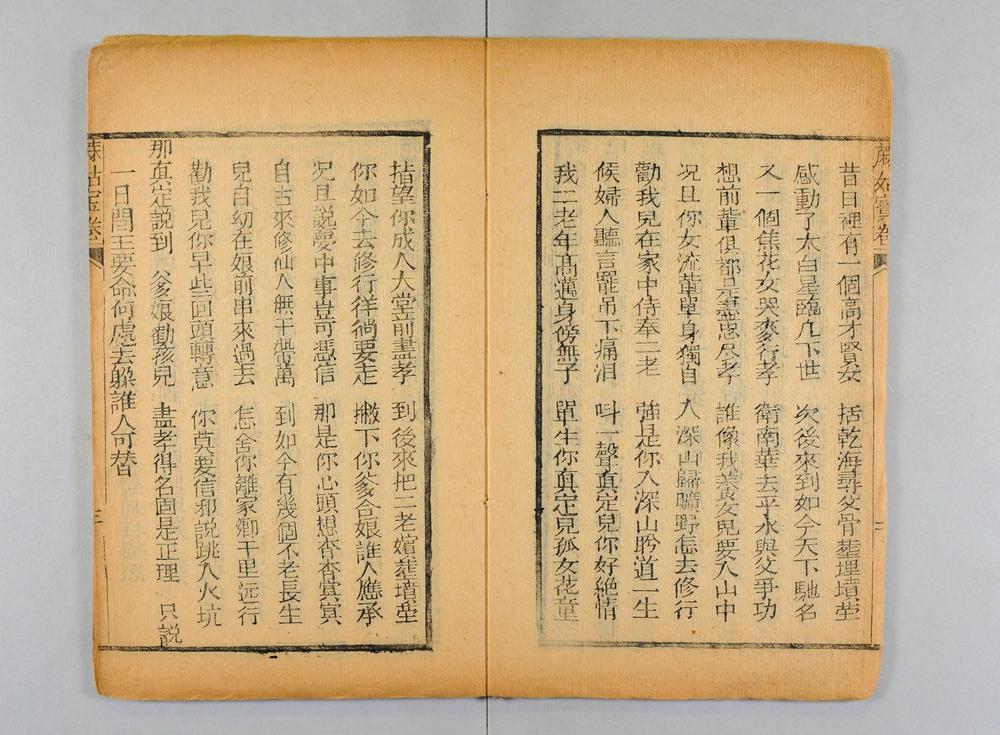 昔日裡有一個高才賢女 括乾海尋父骨塟埋墳塋
感動了太白星臨凡下世 次後來到如今天下馳名
又一個焦花女哭麥行孝 衛南華去平水與父爭功
想前輩俱都是盡忠尽孝 誰像我養女兒要入山中
况且你女流輩單身獨自 入深山歸曠野怎去修行
勸我兒在家中侍奉二老 強是你入深山聆道一生
候婦人聽言罷吊下痛泪 呌一聲真定兒你好絶情
我二老年髙邁身傍無子 單生你真定兒孤女花童
二
指望你成人大堂前盡孝 到後來把二老䆠塟墳塋
你如今去修行徉徜要走 撇下你爹合娘誰人應承
况且説夢中事豈可憑信 那是你心頭想杳杳㝠㝠
自古來修仙人無千帶萬 到如今有幾個不老長生
兒自幼在娘前串來過去 怎舍你離家鄉千里远行
勸我兒你早些回頭轉意 你莫要信邪説跳入火坑
那真定説到 父爹娘勸孩兒 盡孝得名固是正理 只説
一日閆王要命何處去躱誰人可替